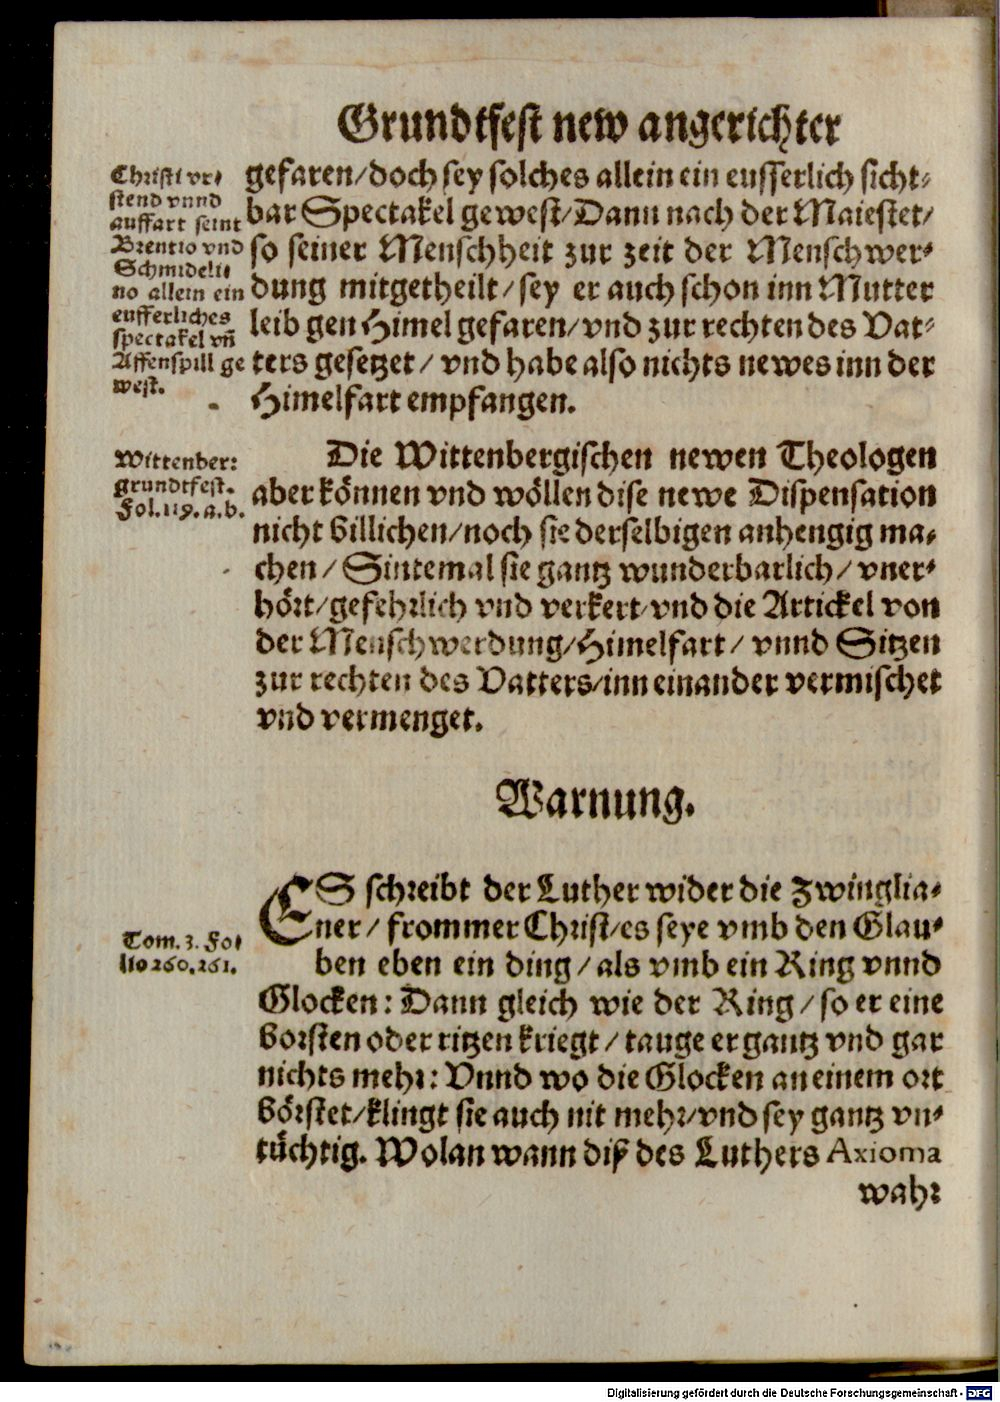 Grundtfest new angerichter
Christi vr⸗
stend vnnd
auffart seint
Brentio vnd
Schmideli⸗
no allein ein
eusserliches
spectakel vñ
Affenspill ge
west.
gefaren/doch sey solches allein ein eusserlich sicht⸗
bar Spectakel gewest/Dann nach der Maiestet/
so seiner Menschheit zur zeit der Menschwer⸗
dung mitgetheilt/sey er auch schon inn Mutter
leib gen Himel gefaren/vnd zur rechten des Vat⸗
ters gesetzet/ vnd habe also nichts newes inn der
Himelfart empfangen.
Wittenber:
grundtfest.
Fol.119.a.b.
Die Wittenbergischen newen Theologen
aber können vnd wöllen dise newe Dispensation
nicht billichen/noch sie derselbigen anhengig ma⸗
chen/ Sintemal sie gantz wunderbarlich/ vner⸗
hört/gefehrlich vnd verkert/vnd die Artickel von
der Menschwerdung/Himelfart/ vnnd Sitzen
zur rechten des Vatters/inn einander vermischet
vnd vermenget.
Warnung.
Tom. 3. Fo⸗
lio 260.261.
ES schreibt der Luther wider die Zwinglia⸗
ner/ frommer Christ/es seye vmb den Glau⸗
ben eben ein ding/als vmb ein Ring vnnd
Glocken: Dann gleich wie der Ring/so er eine
borsten oder ritzen kriegt/ tauge er gantz vnd gar
nichts mehr: Vnnd wo die Glocken an einem ort
börstet/klingt sie auch nit mehr/vnd sey gantz vn⸗
tüchtig. Wolan wann diß des Luthers Axioma
wahr
Digitalisierung gefördert durch die Deutsche Forschungsgemeinschaft - DFG